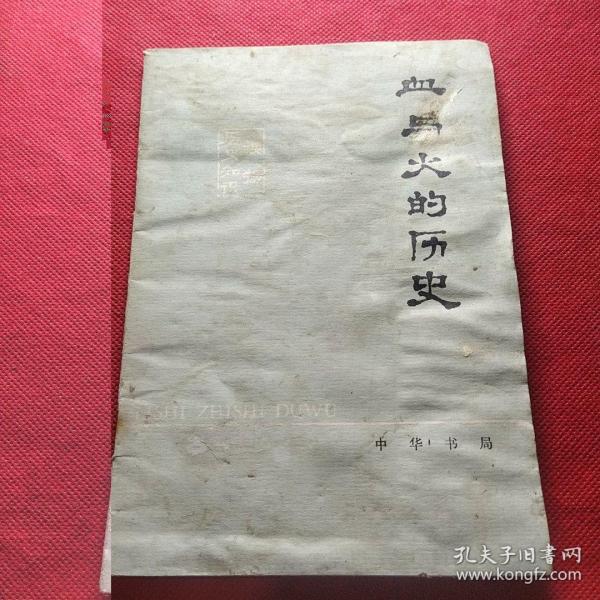 血与火的历史
SHI ZHISHI DUWU
中华书局
孔夫子旧书网
www.kongfz.com